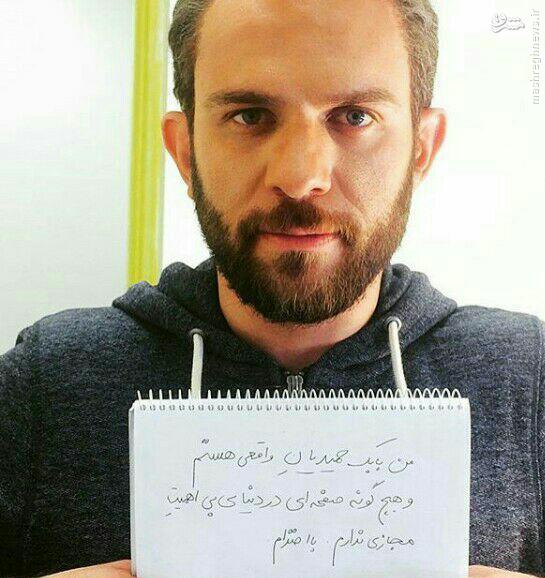 مشرق
mashreghnews.ir
من بابک حمیدیانِ واقعی هستم
و هیچ گونه صفحه ای در دنیای بی اهمیتِ
مجازی ندارم. با احترام.